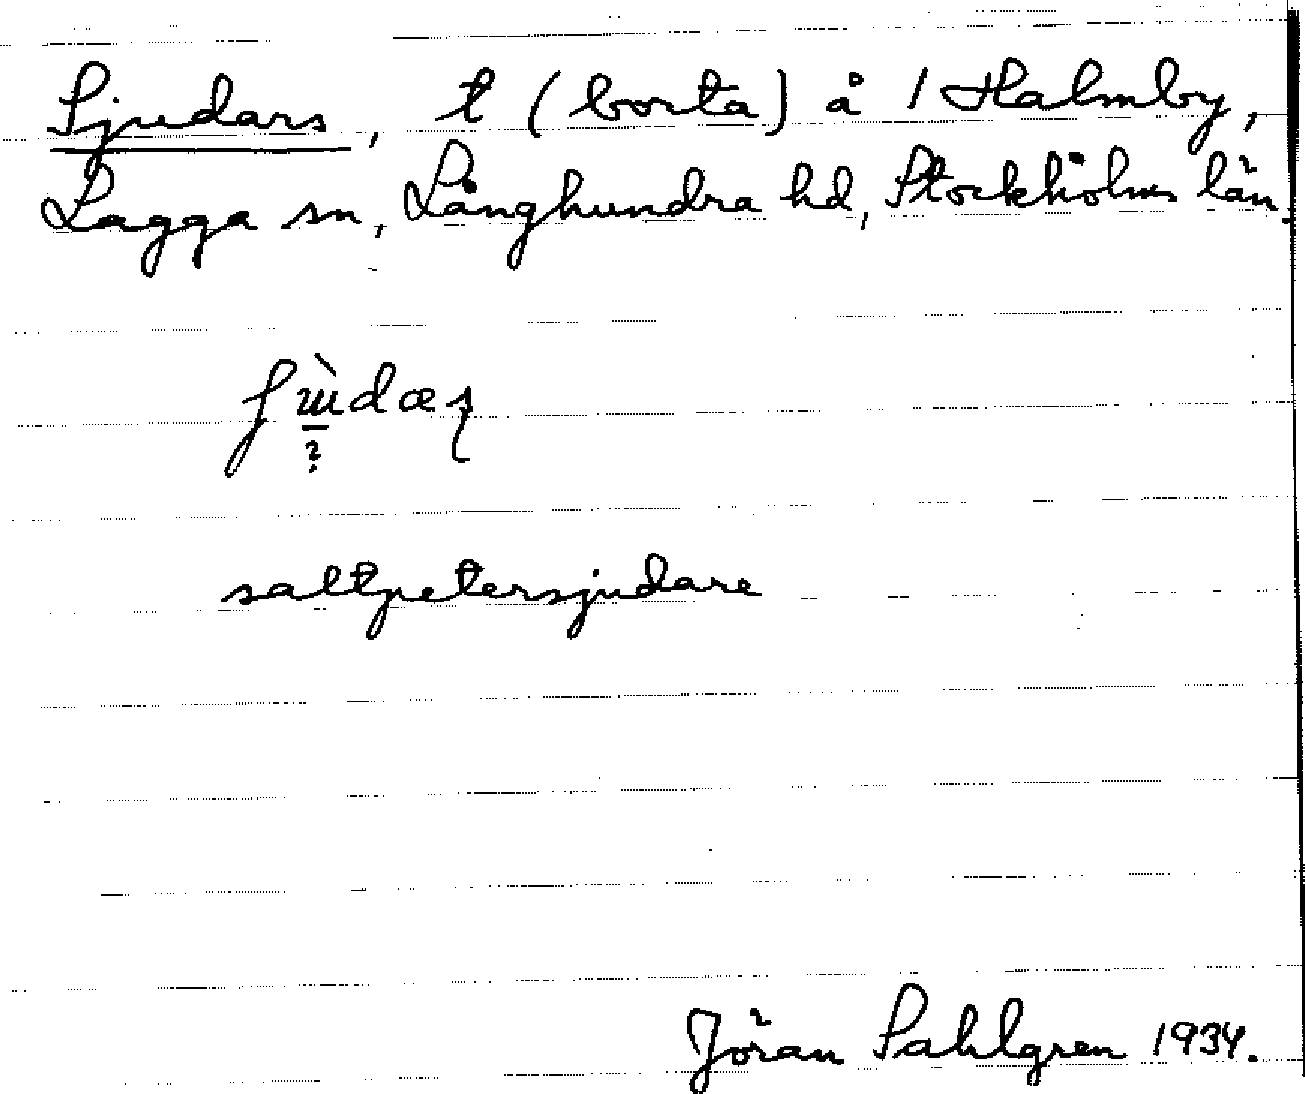 Sjudars, t (borta) å 1 Halmby,
Lagga sn, Långhundra hd, Stockholms län.
saltpetersjudare
Jöran Sahlgren 1934.